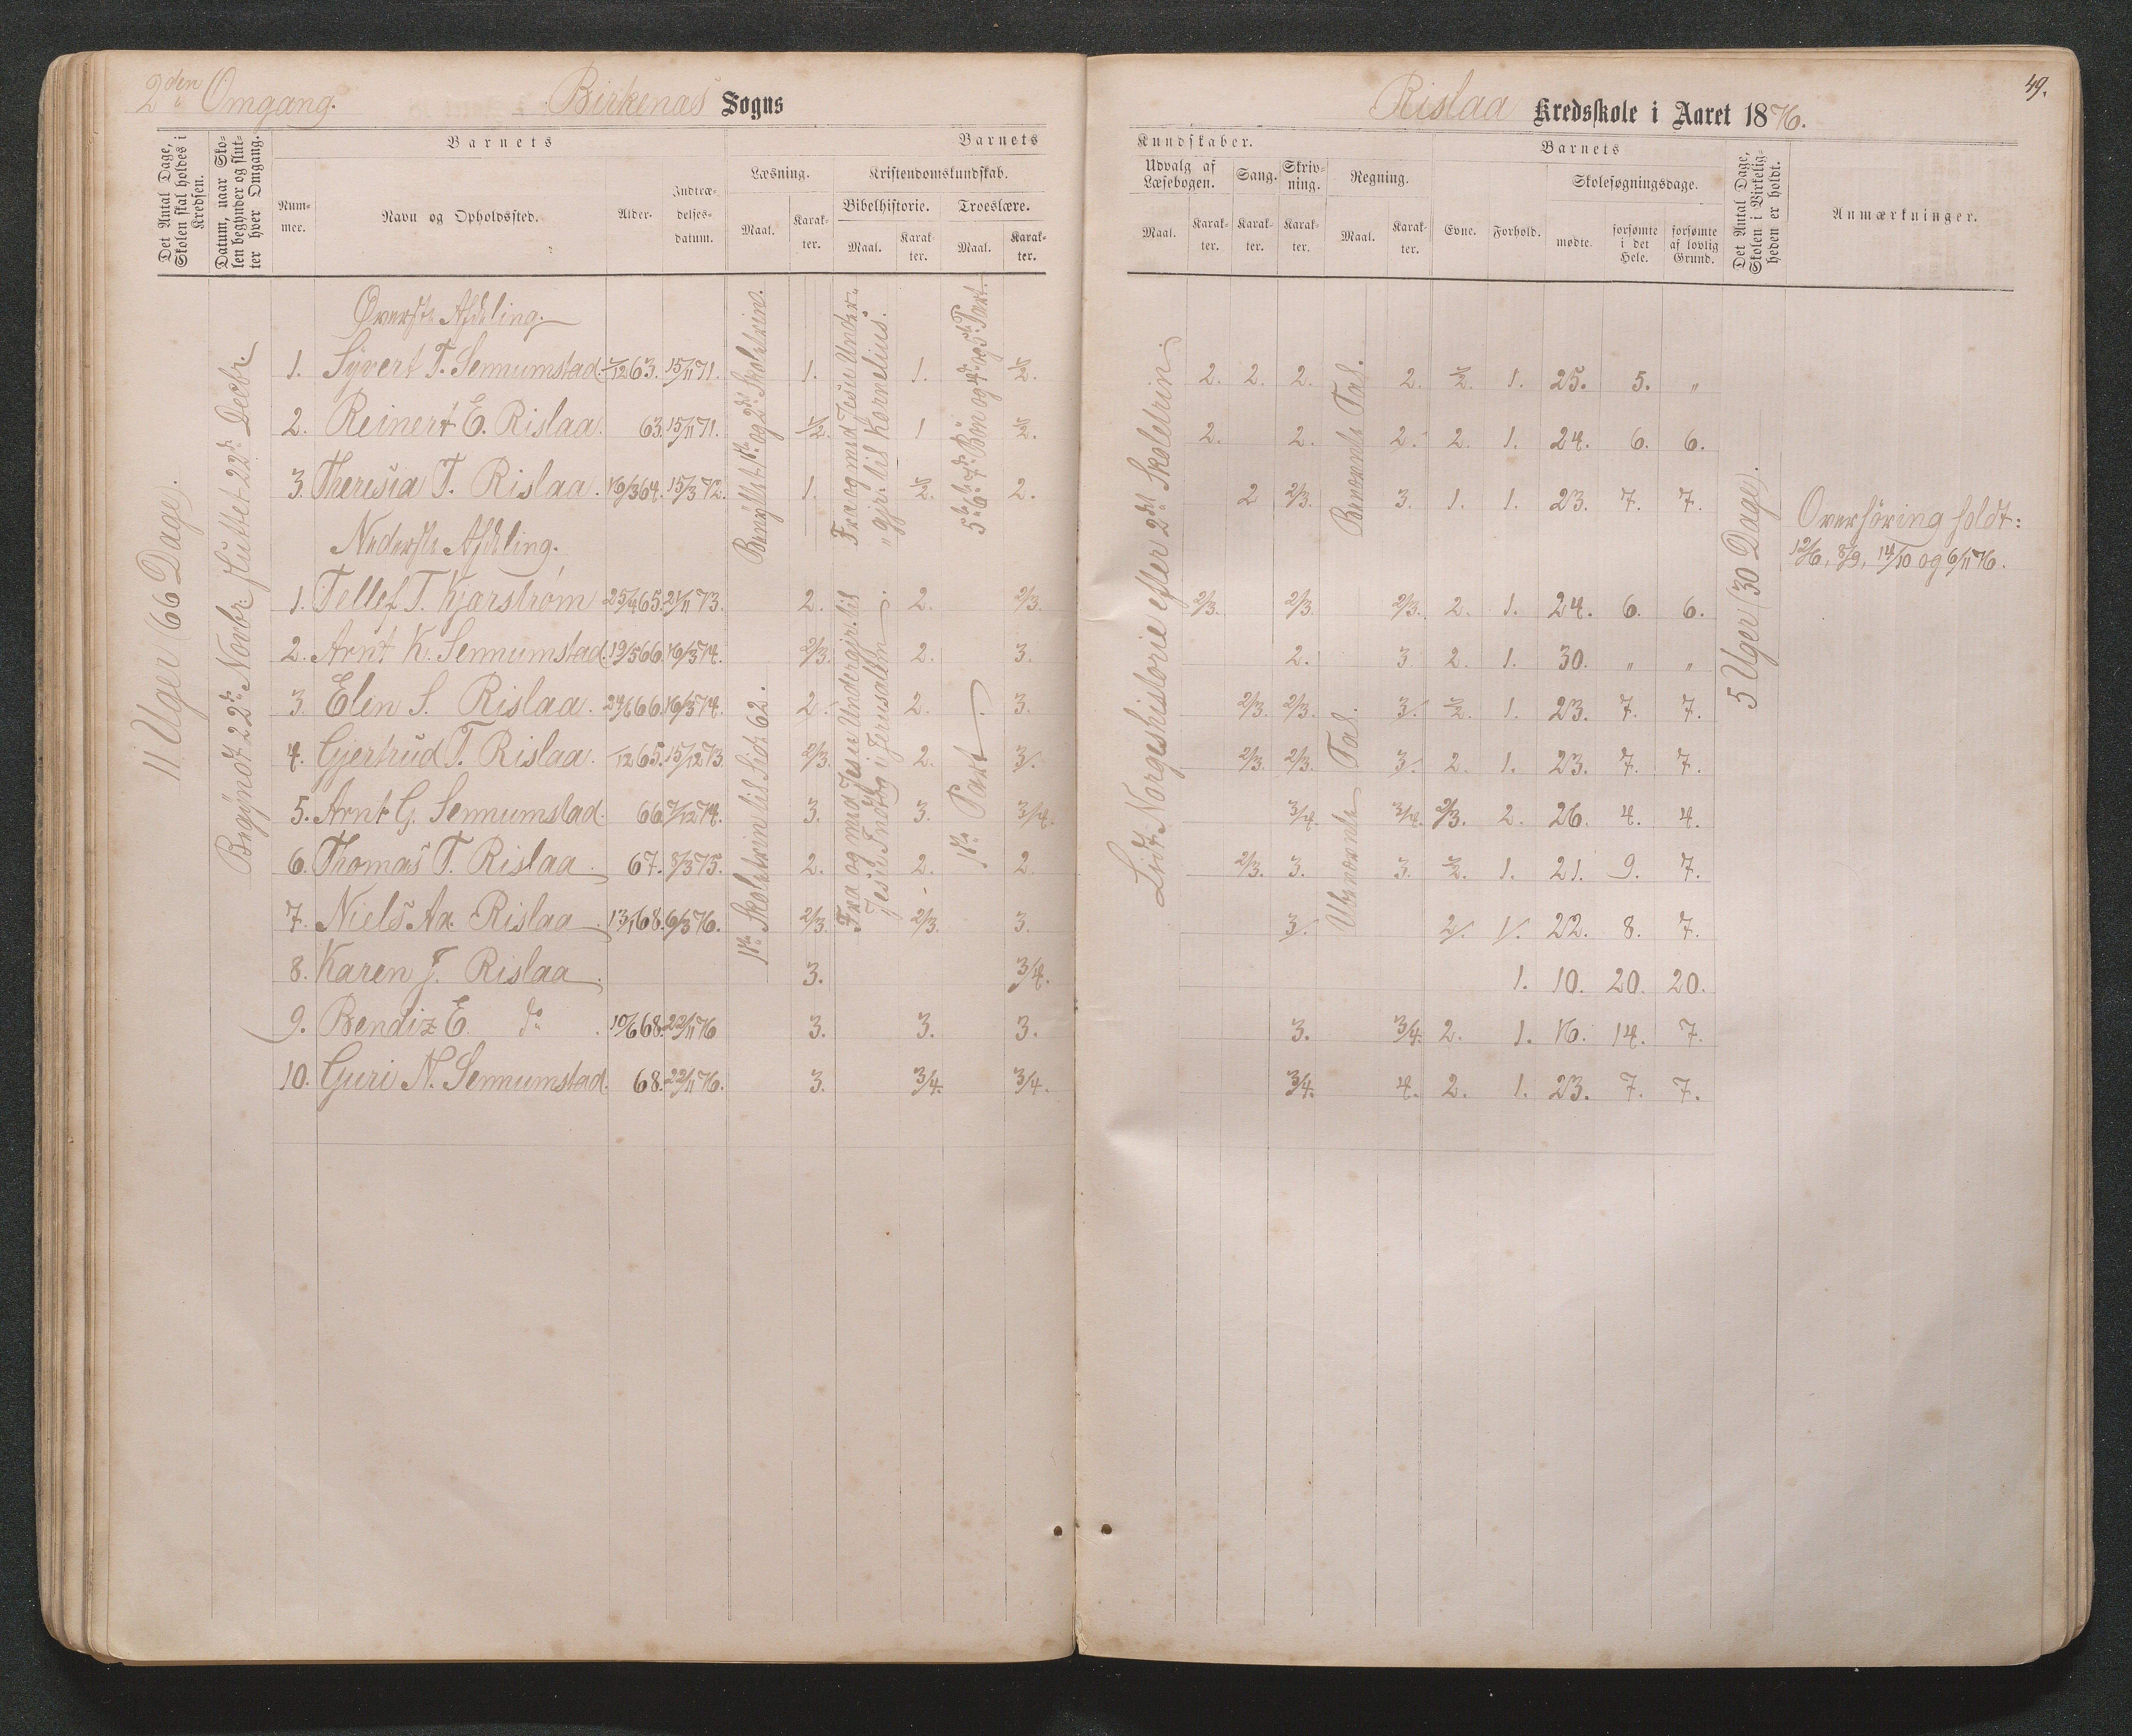 2den Omgang.
Birkenæs Sogns
Rislaa Kredsskole i Aaret 1876.
49.
Det Antal Dage, Skolen skal holdes i Kredsen.
Datum, naar Skolen begynder og slutter hver Omgang.
Barnets
Nummer.
Navn og Opholdssted.
Alder.
Indtrædelsesdatum.
Barnets
Læsning.
Maal.
Karakter.
Kristendomskundskab.
Bibelhistorie.
Maal.
Karakter.
Troeslære.
Maal.
Karakter.
Kundskaber.
Udvalg af Læsebogen.
Maal.
Karakter.
Sang.
Karakter.
Skrivning.
Karakter.
Regning.
Maal.
Karakter.
Barnets
Evne.
Forhold.
Skolesøgningsdage.
mødte.
forsømte i det Hele.
forsømte af lovlig Grund.
Det Antal Dage, Skolen i Virkeligheden er holdt.
Anmærkninger.
11 Uger (66 Dage).
Begyndt 22de Novbr. sluttet 22de Decbr.
Øverste Afdeling.
1. Syvert T. Sennumstad. /12 63. 15/11 71. 1. 1. 1/2. 2. 2. 2. 2. 1/2. 1. 25. 5. „
2. Reinert E. Rislaa. 63. 15/11 71. 1/2. 1 1/2. 2. 2. 2. 2. 1. 24. 6. 6.
3. Theresia T. Rislaa. 16/3 64. 15/3 72. 1. 1/2. 2. 2 2/3. 3. 1. 1. 23. 7. 7.
Nederste Afdeling.
1. Tellef T. Kjærstrøm 25/4 65. 21/11 73. 2. 2. 2/3. 2/3. 2/3. 2/3. 2. 1. 24. 6. 6.
2. Arnt K. Sennumstad. 19/5 66. 16/3 74. 2/3. 2. 3. 2. 3 2. 1. 30. „ „
3. Elen S. Rislaa. 24/6 66. 16/3 74. 2. 2. 3. 2/3. 2/3. 3. 1/2. 1. 23. 7. 7.
4. Gjertrud T. Rislaa. /12 65. 15/12 73. 2/3. 2. 3. 2/3. 2/3. 3. 2. 1. 23. 7. 7.
5. Arnt G. Sennumstad. 66. 7/12 74. 3. 3. 3/4. 3/4. 3/4. 2/3. 2. 26. 4. 4.
6. Thomas T. Rislaa 67. 8/3 75. 2. 2. 2. 2/3. 3. 3. 1/2. 1. 21. 9. 7.
7. Niels Aa. Rislaa 13/1 68. 6/3 76. 2/3. 2/3. 3. 3. 2. 1. 22. 8. 7.
8. Karen J. Rislaa 3. 3/4. 1. 10. 20. 20.
9. Bendix E. do 10/6 68. 22/11 76 3. 3. 3. 3. 3/4. 2. 1. 16. 14. 7.
10. Guri N. Sennumstad. 68. 22/11 76. 3. 3/4. 3/4. 3/4. 4. 2. 1. 23. 7. 7.
Benyttet 1ste og 2det Skoletrin.
1ste Skoletrin til Side 62.
Fra og med Jesu Undergjr. til Kornelius.
Fra og med Jesu Undergjr. til Jesu Indtog i Jerusalem
5te 6te og 7de Bøn og 4de og 5te Part.
1ste Part
Lidt Norgeshistorie efter 2det Skoletrin.
Benævnte Tal.
Ubenævnte Tal.
5 Uger (30 Dage).
Overhøring holdt:
12/6, 8/9, 14/10 og 6/11 76.